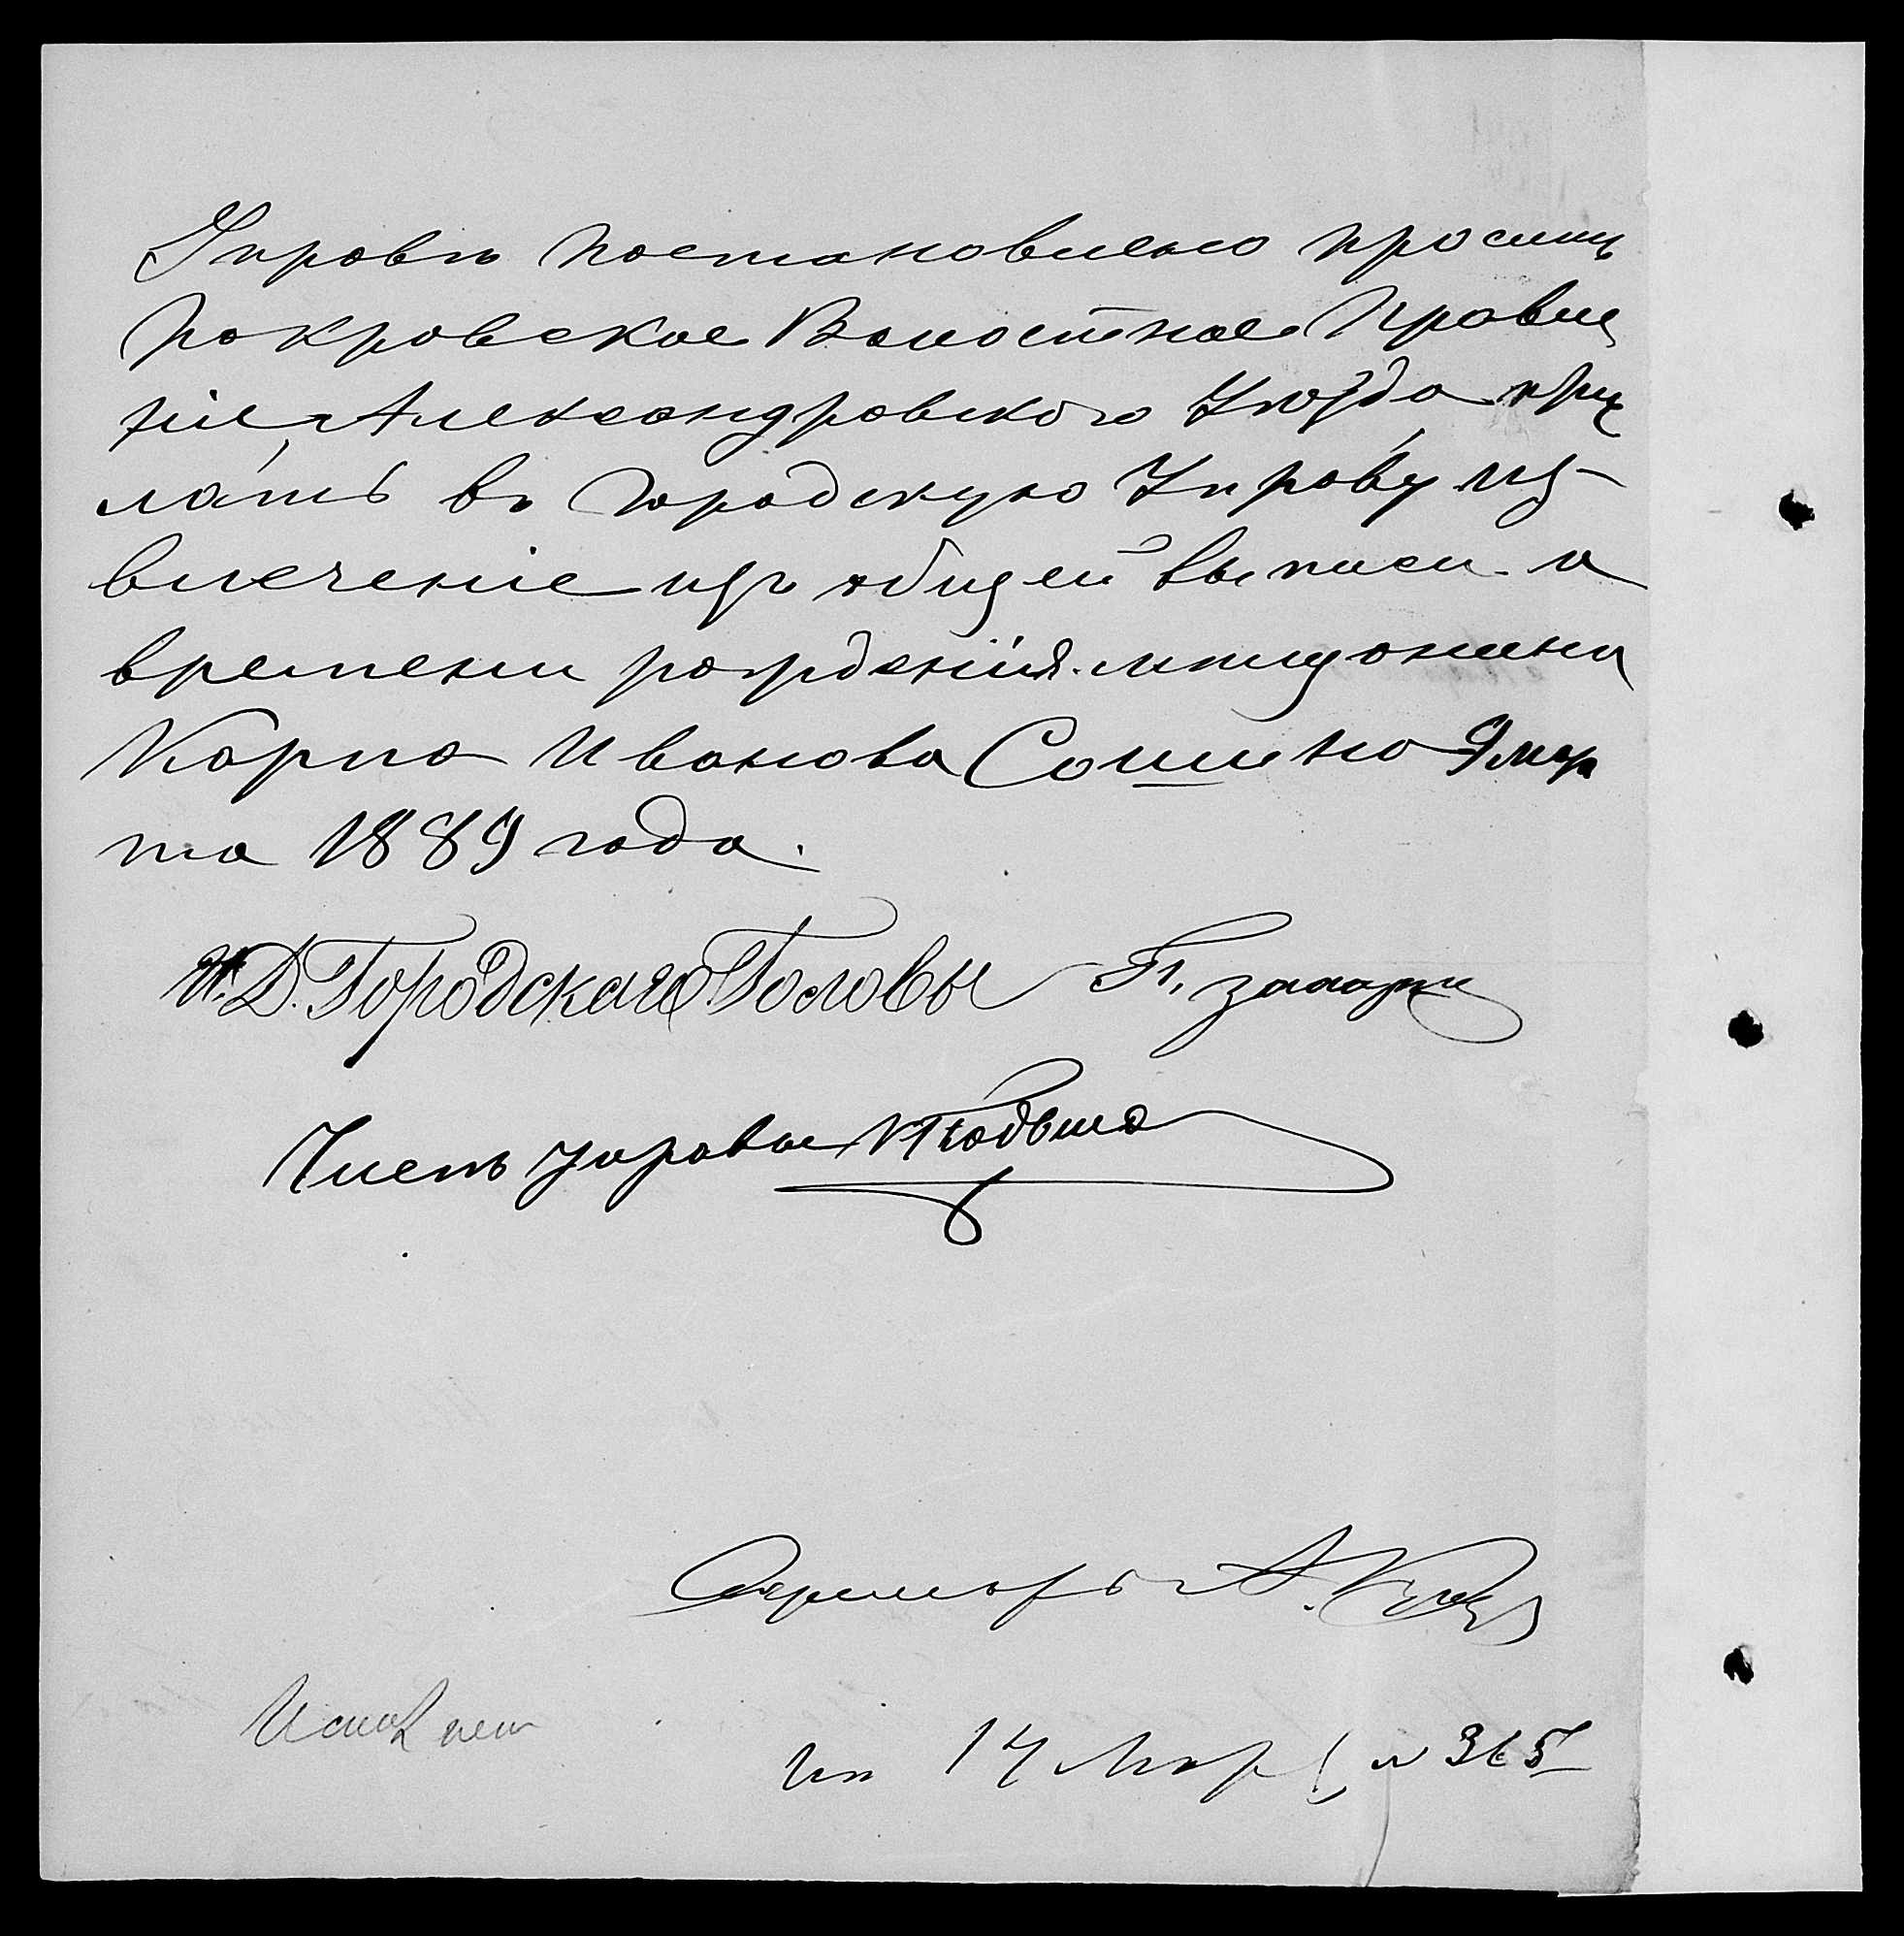 Управѣ постановлено просить
Покровское Волостное Правле
ніе, Александровского Уѣзда при
лать въ Городскую Управу из-
влеченіе изъ общей выписи о
времени рожденія мещанина
Карпа Иванова Сошино 9 мар
та 1889 года.
И. Д. Городскаго Головы П.
Членъ управы
А.
Исполнен
Ис 14 Мар № 365